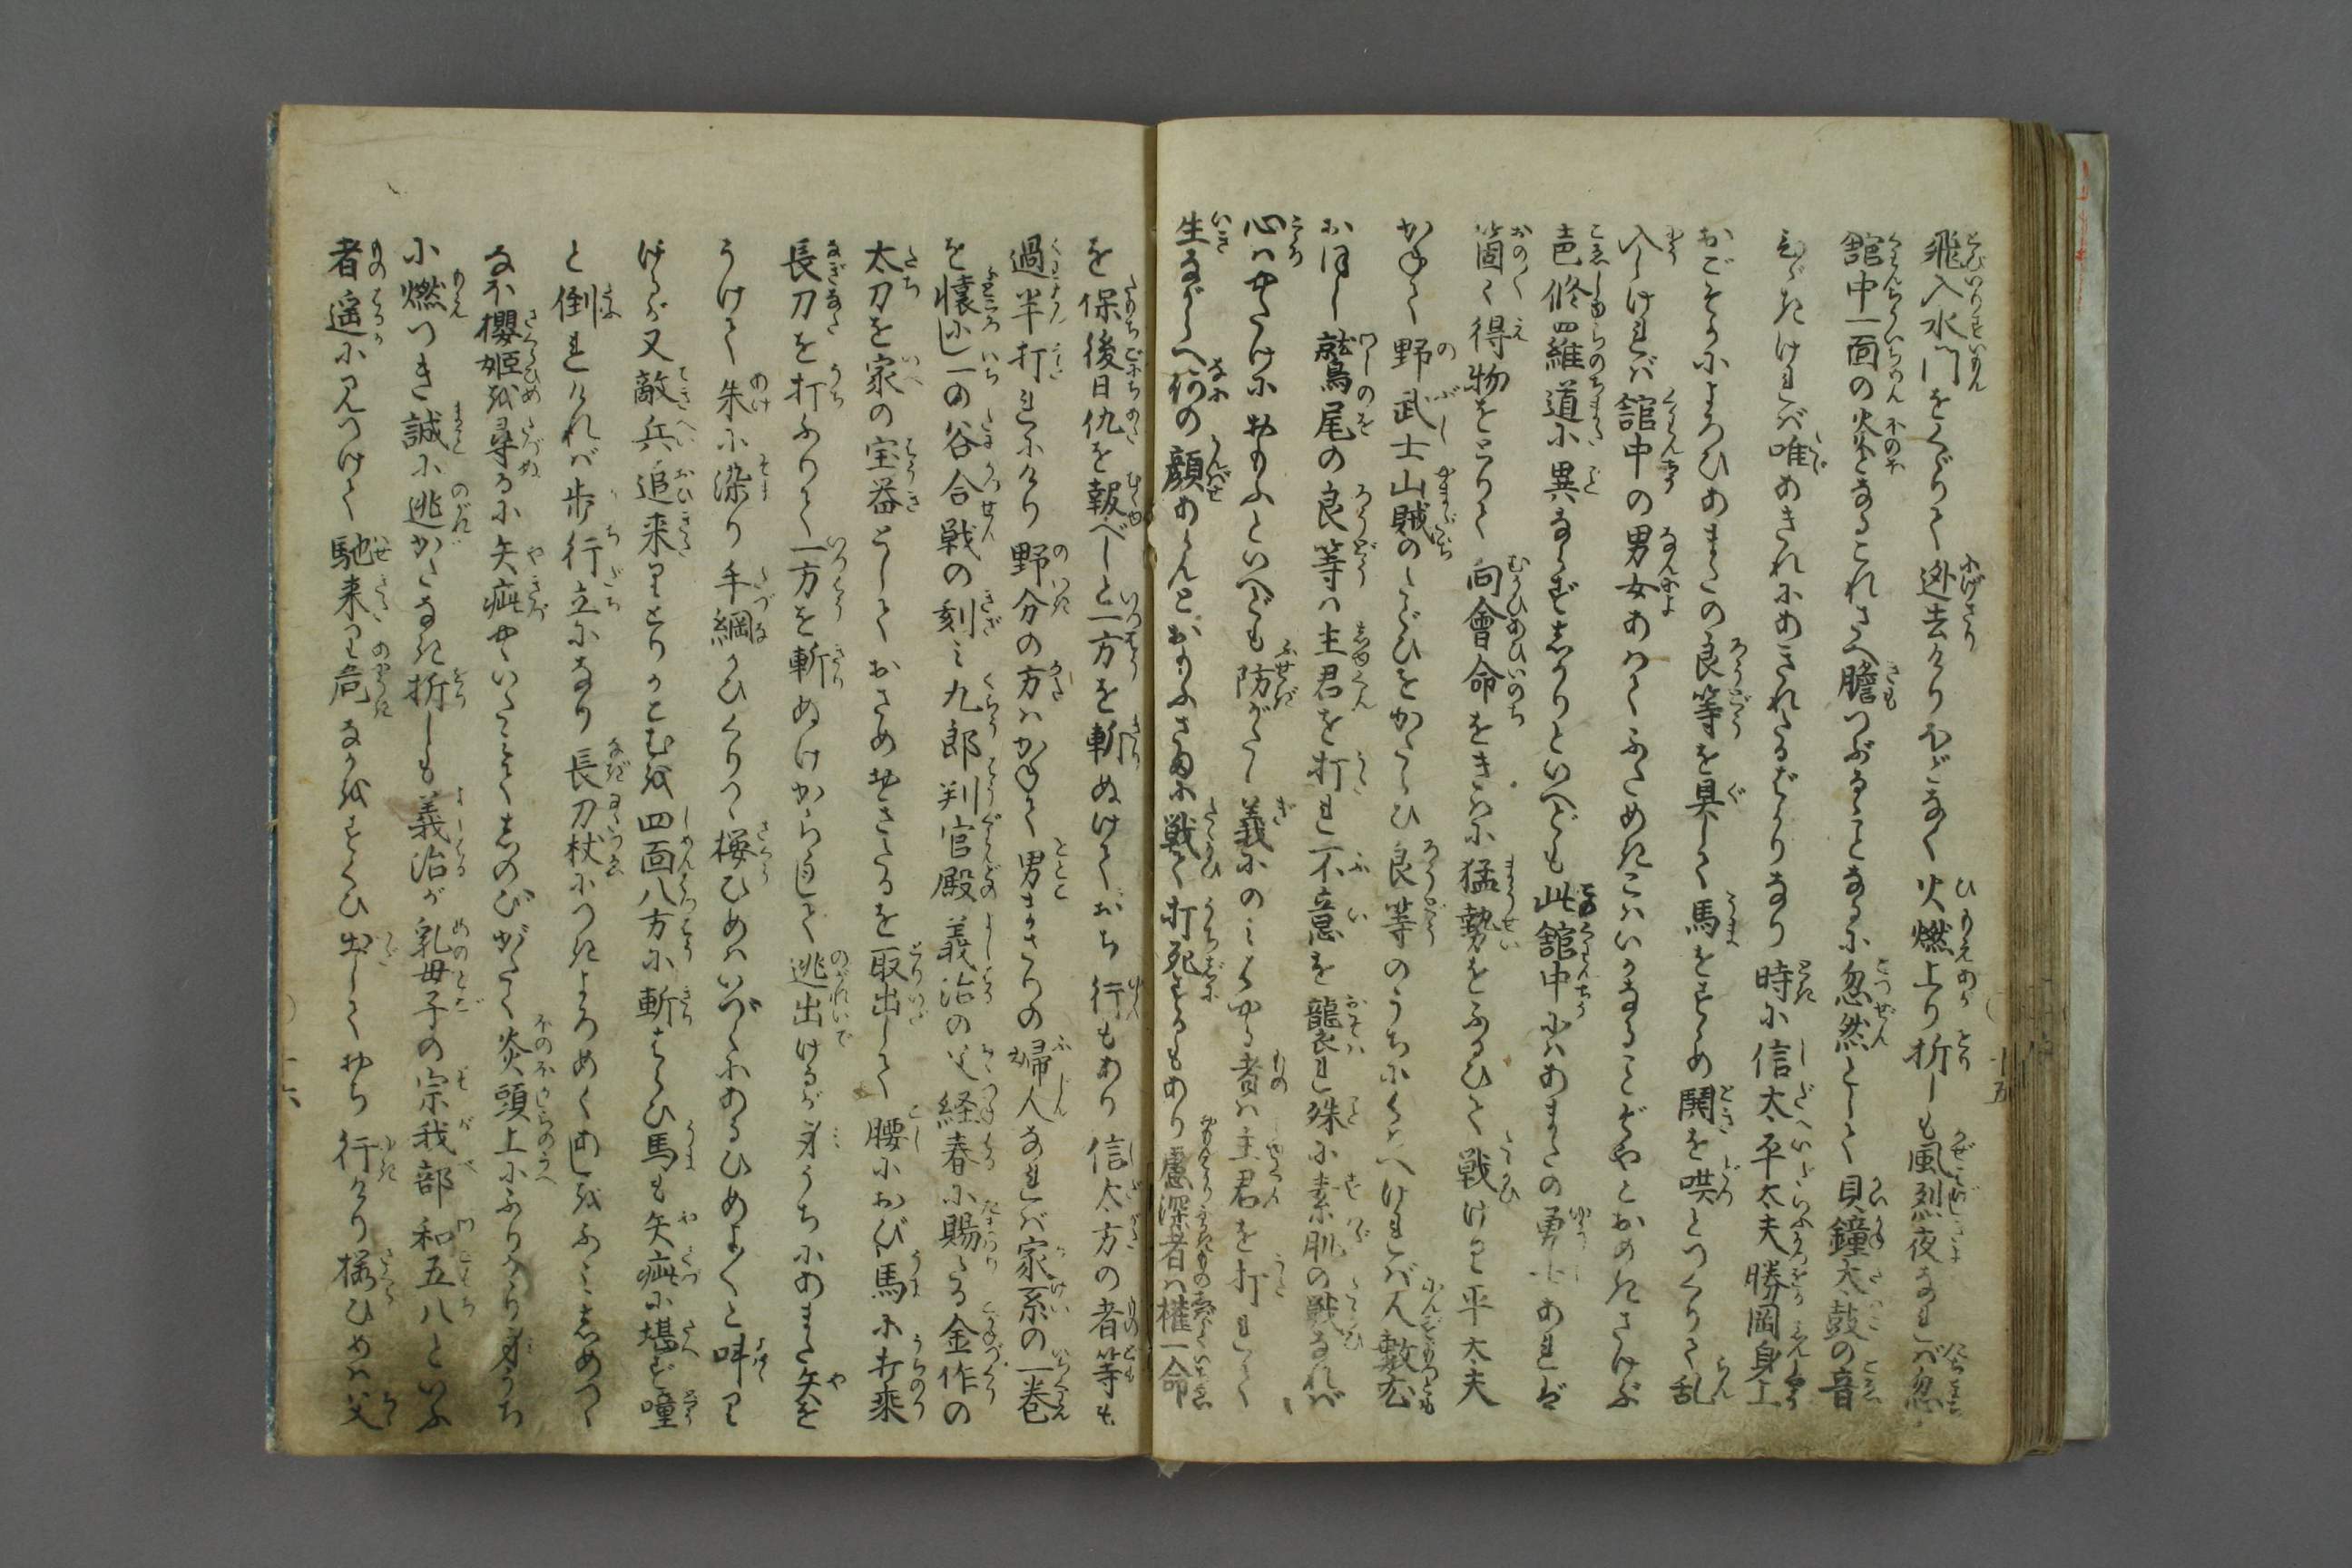 飛入水門をくゞりて迯去けりほどなく火燃上り折しも風烈夜なれば忽
舘中一面の火となるこれさへ膽つぶるゝことなるに忽然として貝鐘太鼓の音
ひゞきければ唯あきれにあきれたるばかりなり時に信太平太夫勝岡身上
おごそかによろひあまたの良等を具して馬をすゝめ鬨を哄とつくりて乱
入しければ舘中の男女あはてふためきこはいかなることぞやとおめきさけぶ
声修羅道に異ならずしかりといへども此舘中にはあまたの勇士あれば
箇々得物をとりて向會命をきはに猛勢をふるひて戦けり平太夫
かねて野武士山賊のたぐひをかたらひ良等のうちにくはへければ人数多
おほし鷲尾の良等は主君を打れ不意を襲れ殊に素肌の戦なれば
心はやたけにおもふといへども防がたし義にのみはやる者は主君を打れして
生ながらへ何の顔あらんとおもふさまに戦て打死するもあり慮深者は権一命
を保後日仇を報べしと一方を斬ぬけておち行もあり信太方の者等も
過半打れにけり野分の方はかねて男まさりの婦人なれば家系の一巻
を懐にし一の谷合戦の刻み九郎判官殿義治の父経春に賜たる金作の
太刀を家の宝器としておさめおきたるを取出して腰におび馬に打乗
長刀を打ふりて一方を斬ぬけからうじて逃出けるが身うちにあまた矢を
うけて朱に染り手綱かひくりつゝ桜ひめはいづくにあるひめよ〳〵と呼り
けるが又敵兵追来りとりこむを四面八方に斬はらひ馬も矢疵に堪ず噇
と倒れければ歩行立になり長刀杖につきよろめくあしをふみしめつゝ
なほ櫻姫を尋るに矢疵やゝいたみてしのびがたく炎頭上にふりかゝり身うち
に燃つき誠に逃がたなき折しも義治が乳母子の宗我部和五八といふ
者遥に見つけて馳来り危なきをすくひ出しておち行けり桜ひめは父
十五
十六